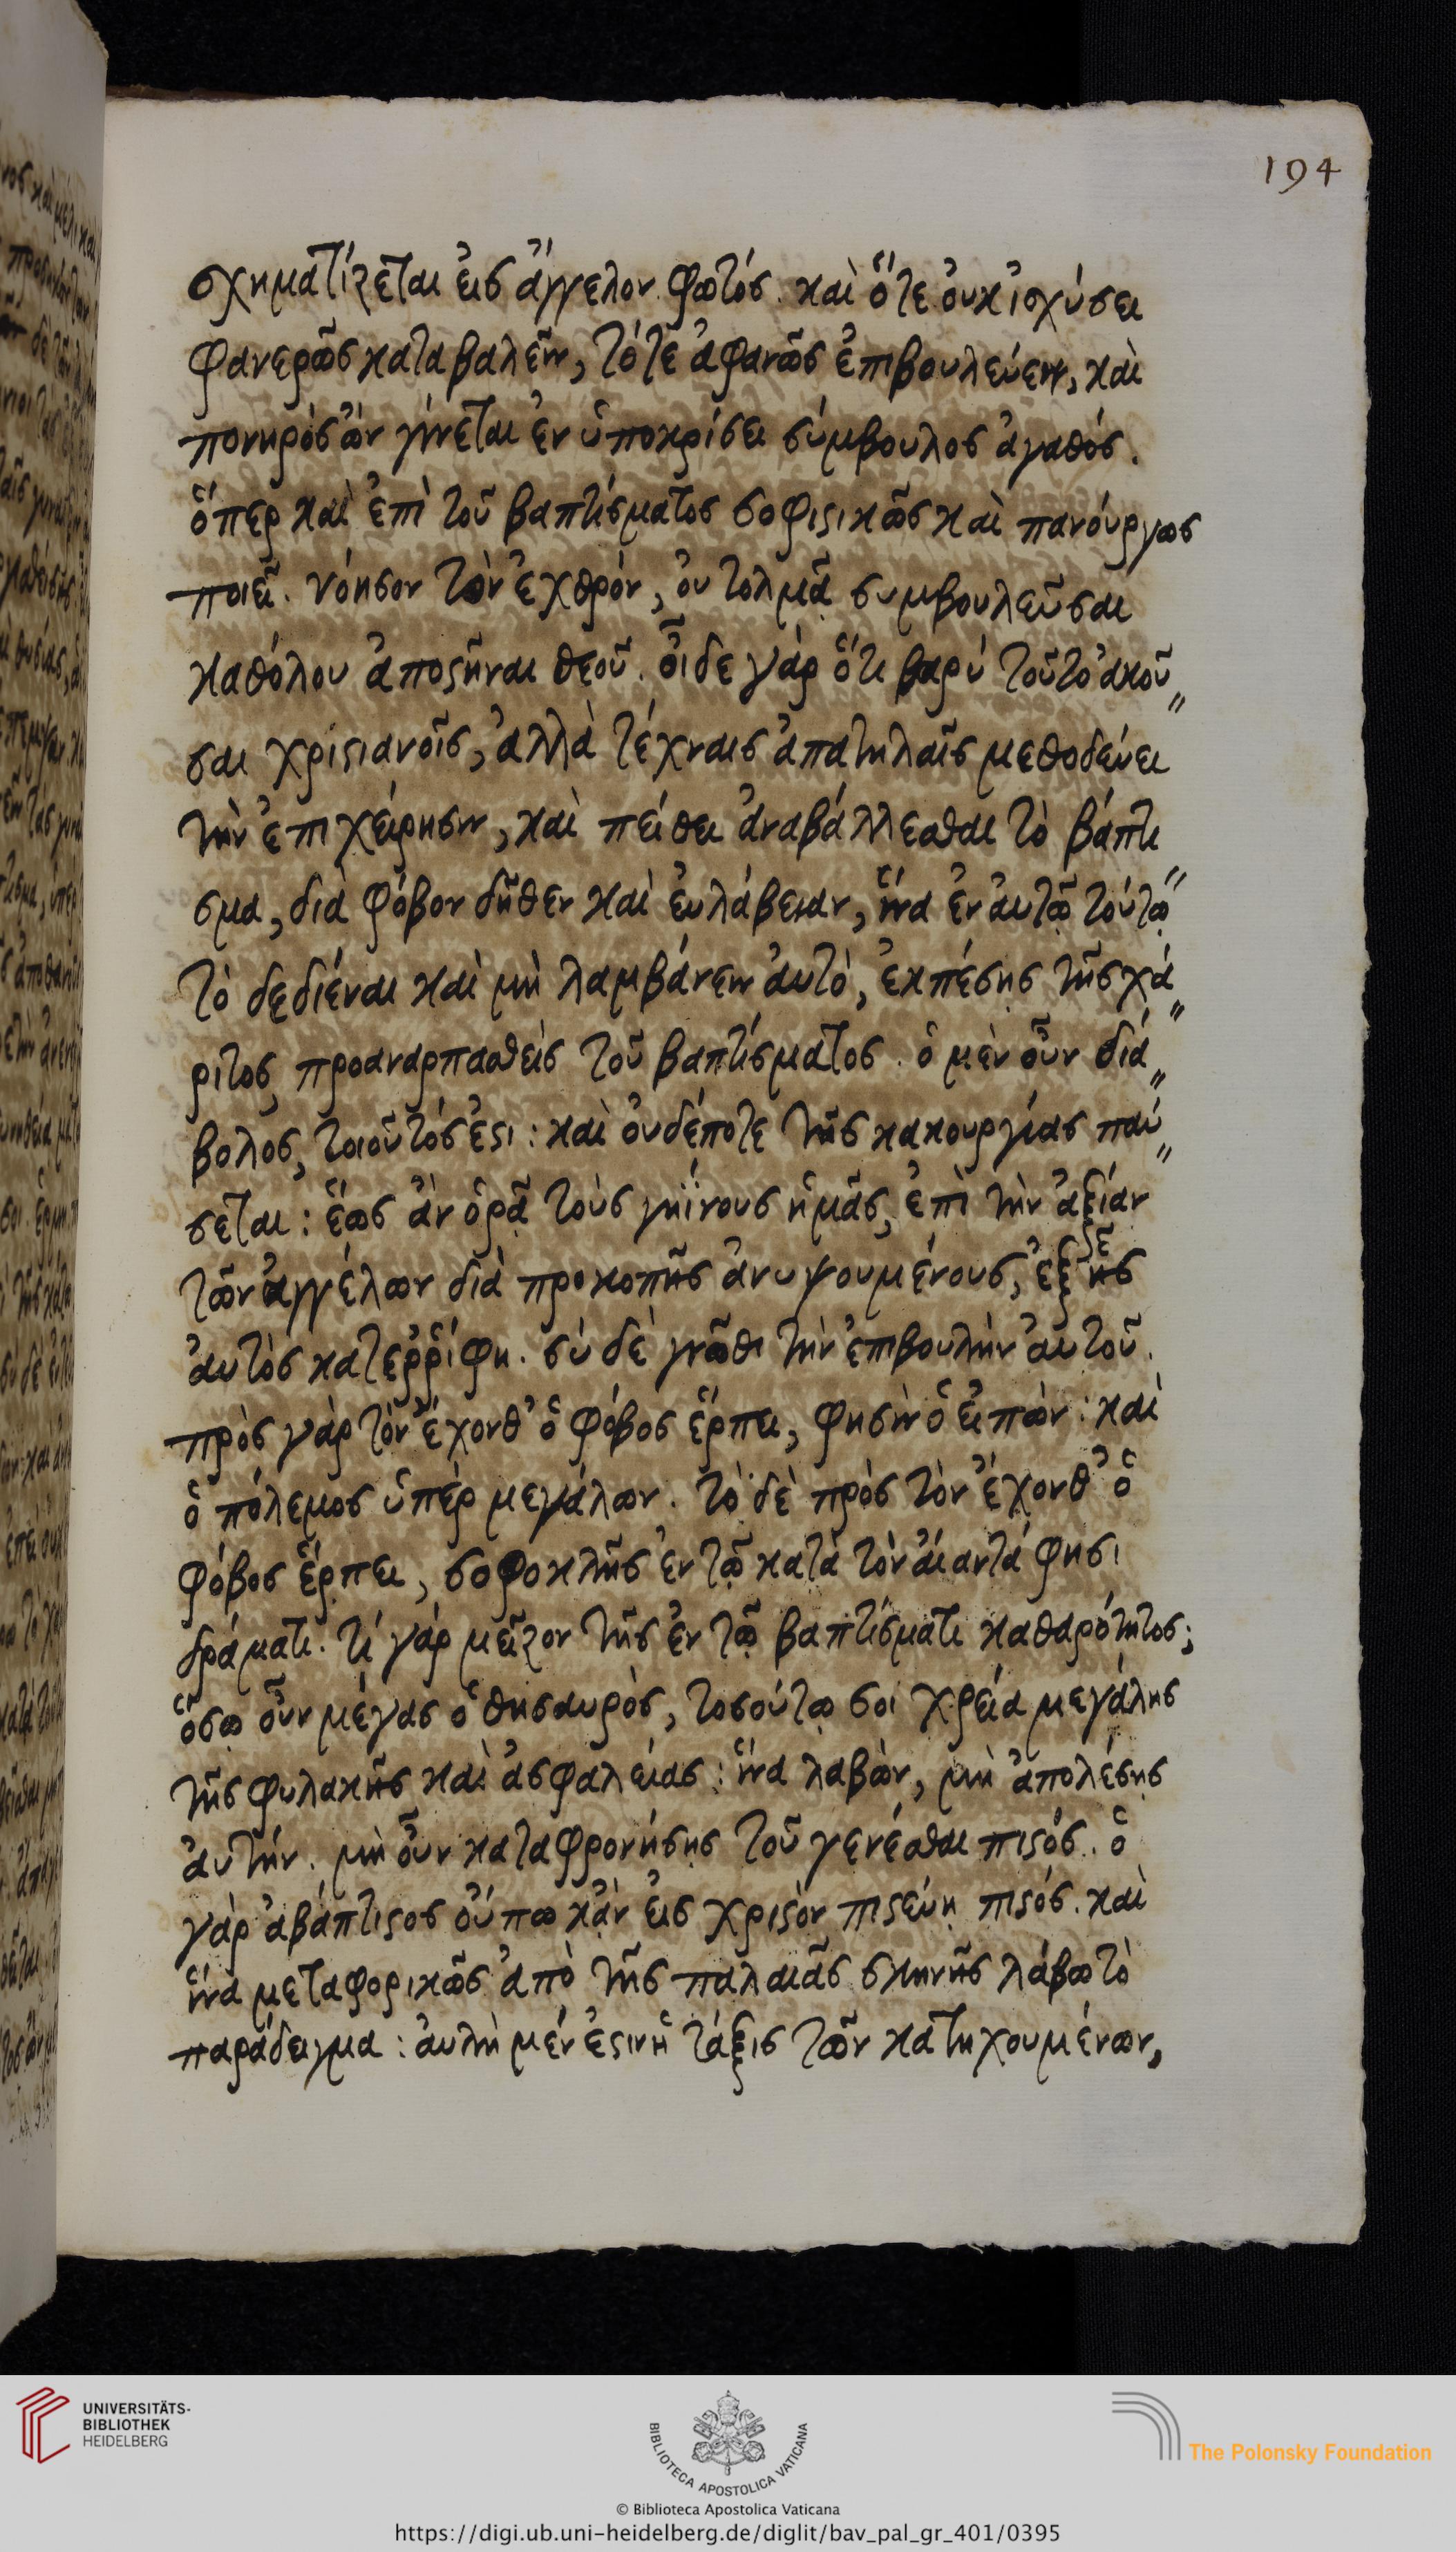 194
σχηματίζεται εἰς ἄγγελον φωτός. καὶ ὅτε οὐκ ἰσχύσει
φανερῶς καταβαλεῖν, τότε ἀφανῶς ἐπιβουλεύειν, καὶ
πονηρὸς ὢν γίνεται ἐν ὑποκρίσει σύμβουλος ἀγαθός.
ὅπερ καὶ ἐπὶ τοῦ βαπτίσματος σοφιϛικῶς καὶ πανούργως
ποιεῖ. νόησον τὸν ἐχθρόν, οὐ τολμᾷ συμβουλεῦσαι
καθόλου ἀποϛῆναι θεοῦ. οἶδε γὰρ ὅτι βαρὺ τοῦτο ἀκοῦ
σαι χριϛιανοῖς, ἀλλὰ τέχναις ἀπατηλαῖς μεθοδεύει
τὴν ἐπιχείρησιν, καὶ πείθει ἀναβάλλεσθαι τὸ βάπτι
σμα, διὰ φόβον δῆθεν καὶ εὐλάβειαν, ἵνα ἐν αὐτῷ τούτῳ
τὸ δεδιέναι καὶ μὴ λαμβάνειν αὐτὸ, ἐκπέσῃς τῆς χά
ριτος προαναρπασθεὶς τοῦ βαπτίσματος. ὁ μὲν οὖν διά
βολος, τοιοῦτός ἐϛι: καὶ οὐδέποτε τῆς κακουργίας παύ
σεται: ἕως ἂν ὁρᾷ τοὺς γηΐνους ἡμᾶς, ἐπὶ τὴν ἀξίαν
τῶν ἀγγέλων διὰ προκοπῆς ἀνυψουμένους, ἐξ ἧς
αὐτὸς κατερρίφη. σὺ δὲ γνῶθι τὴν ἐπιβουλὴν αὐτοῦ.
πρὸς γὰρ τὸν ἔχονθ' ὁ φόβος ἕρπει, φησὶν ὁ εἰπών: καὶ
ὁ πόλεμος ὑπὲρ μεγάλων. τὸ δὲ πρὸς τὸν ἔχονθ' ὁ
φόβος ἕρπει, σοφοκλῆς ἐν τῷ κατὰ τὸν αἴαντά φησι
δράματι. τί γὰρ μεῖζον τῆς ἐν τῷ βαπτίσματι καθαρότητος;
ὅσῳ οὖν μέγας ὁ θησαυρὸς, τοσούτῳ σοι χρεία μεγάλης
τῆς φυλακῆς καὶ ἀσφαλείας: ἵνα λαβὼν, μὴ ἀπολέσῃς
αὐτήν. μὴ οὖν καταφρονήσῃς τοῦ γενέσθαι πιϛός. ὁ
γὰρ ἀβάπτιϛος οὔπω κἂν εἰς χριϛὸν πιϛεύῃ πιϛός. καὶ
ἵνα μεταφορικῶς ἀπὸ τῆς παλαιᾶς σκηνῆς λάβω τὸ
παράδειγμα: αὐλὴ μέν ἐϛιν ἡ τάξις τῶν κατηχουμένων,
UNIVERSITÄTS-
BIBLIOTHEK
HEIDELBERG
BIBLIOTECA APOSTOLICA VATICANA
The Polonsky Foundation
© Biblioteca Apostolica Vaticana
https://digi.ub.uni-heidelberg.de/diglit/bav_pal_gr_401/0395